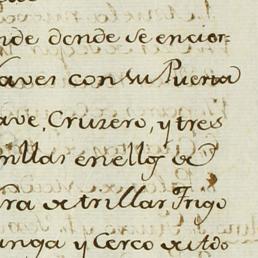 nde donde se encier-
aves con su Puerta
ave, Cruzero, y tres
rillas en ellos de
ra de trillar Trigo
anga y Cerco de